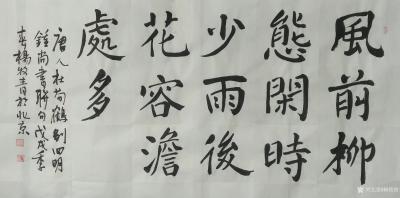 風前柳
態閑時
少雨後
花容澹
處多
唐人杜荀鶴別四明
鍾尚書聯句戊戌季
春楊牧青於北京